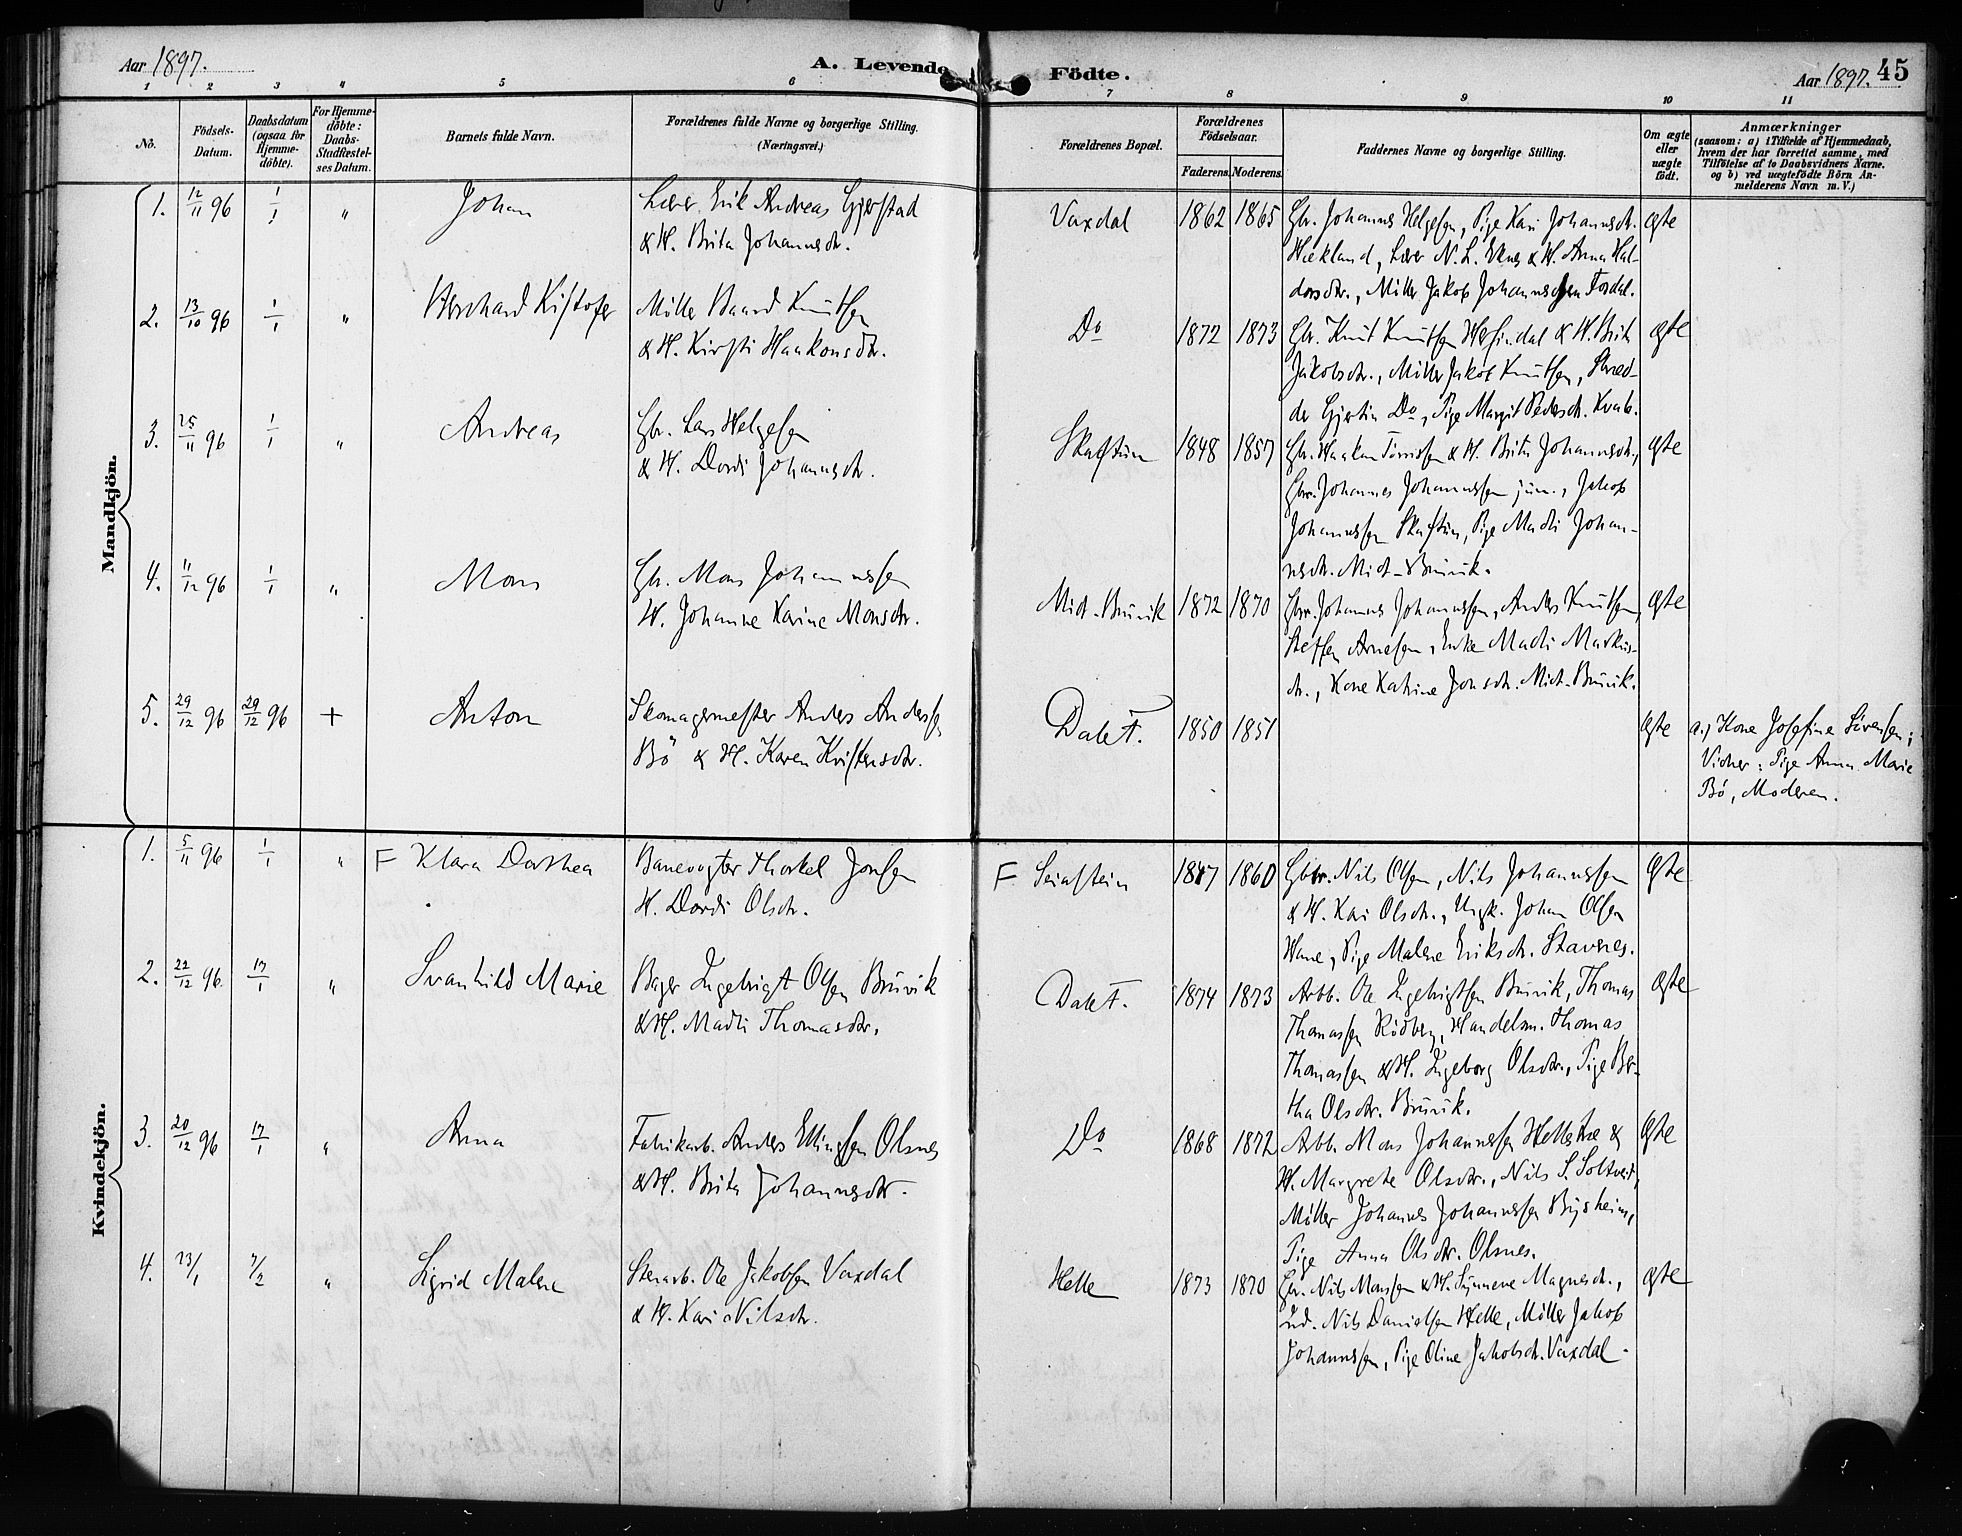 Aar 1897.
A. Levende Födte.
Aar 1897. 45
1 2 3 " 5 6 7 8 9 10 11
No.
Födsels-Datum.
Daabsdatum (ogsaa for Hjemme-döbte).
For Hjemme-döbte: Daabs-Stadfæstel-ses Datum.
Barnets fulde Navn.
Forældrenes fulde Navne og borgerlige Stilling. (Næringsvei.)
Forældrenes Bopæl.
Forældrenes Födselsaar.
Faderens. Moderens.
Faddernes Navne og borgerlige Stilling.
Om ægte eller uægte födt.
Anmærkninger
(saasom: a) i Tilfælde af Hjemmedaab, hvem der har forrettet samme, med Tilföielse af to Daabsvidners Navne, og b) ved uægtefödte Börn An-melderens Navn m. V.)
Mandkjön.
1. 12/11 96 1/1 " Johan
Lærer Erik Andreas Gjerstad
& H. Brita Johannesdr.
Vaxdal 1862 1865
Gbr. Johannes Helgesen, Pige Kari Johannesdr.
Hækland, Lærer N. L. & H. Anna Hal-
dorsdr., Möller Jakob Johannessen Fosdal.
ægte
2. 13/10 96 1/1 " Bernhard Kristofer
Möller Baard Knutsen
& H. Kirsti Haakonsdr.
Do 1872 1873
Gbr. Knut Knutsen & H. Brita
Jakobsdr., Möller Jakob Knutsen, Skræd-
der Gjertin Do, Pige Margit Pedersd.
ægte
3. 25/11 96 1/1 " Andreas
Gbr. Lars Helgesen
& H. Dordi Johannesdr.
Skaftun 1848 1857
Gbr. Haakon & H. Brita Johannesdr.,
Gbr. Johannes Johannessen jun., Jakob
Johannessen Skaftun, Pige Madli Johan-
nesdr. Midt-Bruvik.
ægte
4. 11/12 96 1/1 " Mons
Gbr. Mons Johannessen
H. Johanne Karine Monsdr.
Midt-Bruvik 1872 1870
Gbr. Johannes Johannessen, Anders Knutsen,
Steffen Arnesen, Enke Madli Markus-
dr., Kone Katrine Jonsdr. Midt-Bruvik.
ægte
5. 29/12 96 29/12 96 + Anton
Skomagermester Anders Andersen
Bö & H. Karen Kristensdr.
Dale F. 1850 1851
ægte
a.) Kone Josefine Sörensen;
Vidner: Pige Anna Marie
Bö, Moderen.
Kvindekjön.
1. 5/11 96 1/1 " F Klara Dorthea
Banevogter Thorkel Jonsen
H. Dordi Olsdr.
F 1847 1860
Gbr. Nils Olsen, Nils Johannessen
& H. Kari Olsdr., Ungk. Johan Olsen
Hane, Pige Malene Eriksdr. Stavenes.
ægte
2. 22/12 96 17/1 " Svanhild Marie
Bager Ingebrigt Olsen Bruvik
& H. Madli Thomasdr.
Dale F. 1874 1873
Arbb. Ole Ingebrigtsen Bruvik, Thomas
Thomassen Rödberg, Handelsm. Thomas
Thomassen & H. Ingeborg Olsdr., Pige Ber-
tha Olsdr. Bruvik.
ægte
3. 20/12 96 17/1 " Anna
Fabrikarb. Anders Ellingsen Olsnes
& H. Brita Johannesdr.
Do 1868 1872
Arbb. Mons Johannessen & 
H. Margrete Olsdr., Nils S. Soltveit,
Möller Johannes Johannessen Bysheim,
Pige Anna Olsdr. Olsnes.
ægte
4. 23/1 7/2 " Sigrid Malene
Stenarb. Ole Jakobsen Vaxdal
& H. Kari Nilsdr.
Helle 1873 1870
Gbr. Nils Monsen & H. Synneve Magnesdr.,
Nils Danielsen Helle, Möller Jakob
Johannessen, Pige Oline Jakobsdr. Vaxdal.
ægte